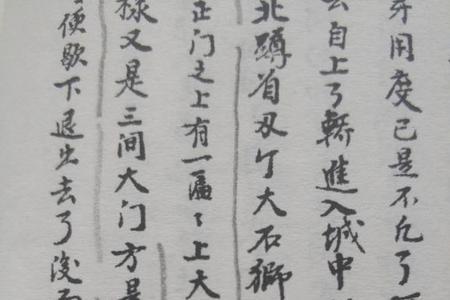 穿用度已是不凡了
自上了轎進入城中
北蹲首刄亇大石獅
正门之上有一匾〻上大
様又是三间大门方是
便歇下退出去了後面